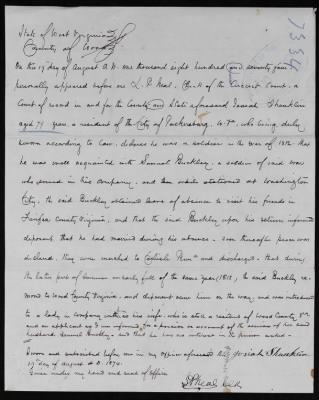 7334
State of West Virginia
County of Wood
On this 19 day of August A.D. one thousand eight hundred and seventy four
personally appeared before me L. P. Neal. Clerk of the Circuit Court. a
Court of record in and for the County and State aforesaid Josiah Shanklin
aged 79 years a resident of the City of Parkersburg. W. Va. who being duly
sworn according to law, declares he was a soldier in the war of 1812 that
he was well acquainted with Samuel Buckley, a soldier of said war
who served in his company. and then while stationed at Washington
City, the said Buckley obtained leave of absence to visit his friends in
Fairfax County Virginia, and that the said Buckley upon his return informed
deponent that he had married during his absence. Soon thereafter peace was
declared, they were marched to Carlisle Penna and discharged. that during
the latter part of summer or early fall of the same year, the said Buckley re-
moved to Wood County Virginia. and deponent saw him on the way, and was introduced
to a lady in company with him as his wife. who is still a resident of Wood County
and an applicant as I am informed, for a pension on account of the services of her said
husband, Samuel Buckley, and that he has no interest in the pension asked
Sworn and subscribed before me in my office aforesaid this Josiah Shanklin
19 day of August A.D. 1874.
Given under my hand and seal of office
Neal Clerk